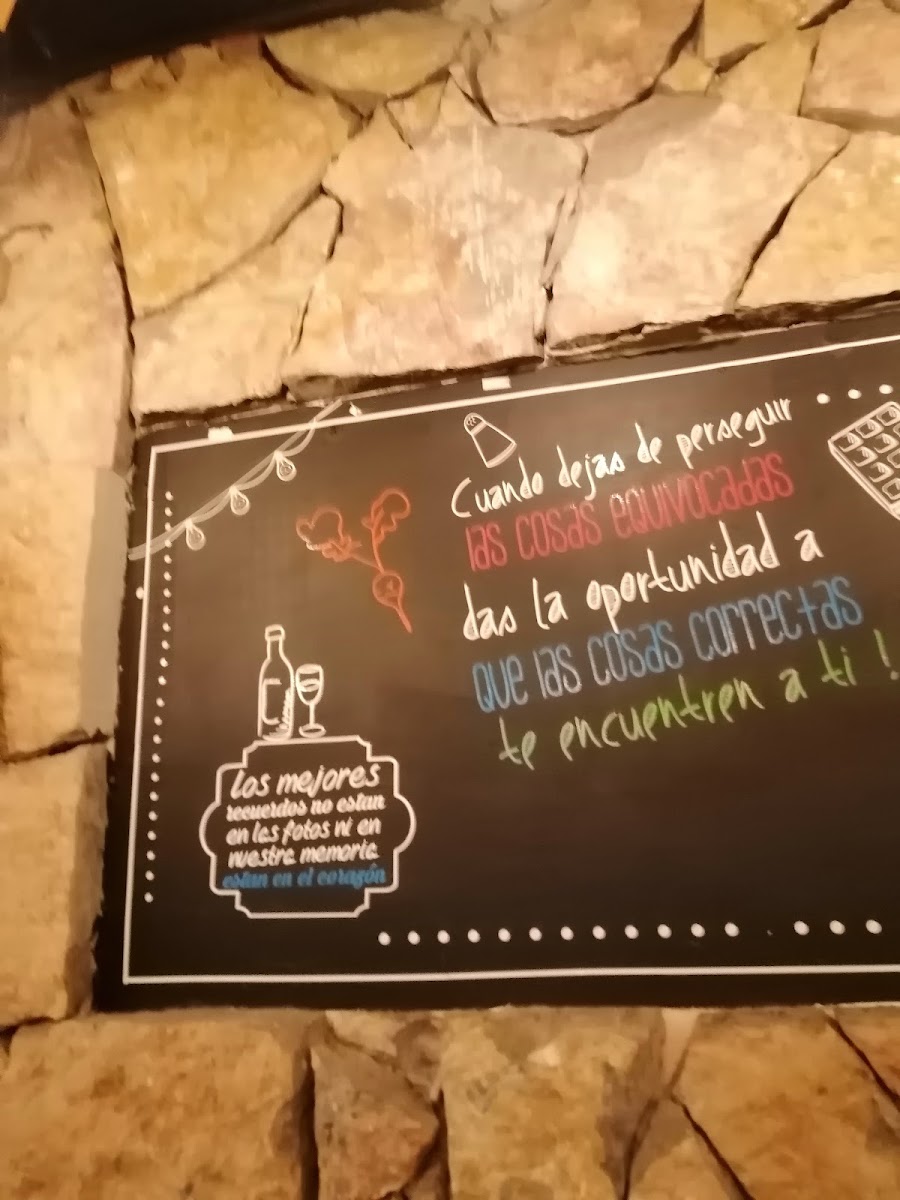 Cuando dejas de perseguir
las cosas equivocadas
das la oportunidad a
que las cosas correctas
te encuentren a ti !
Los mejores
recuerdos no estan
en las fotos ni en
nuestra memoria
estan en el corazón